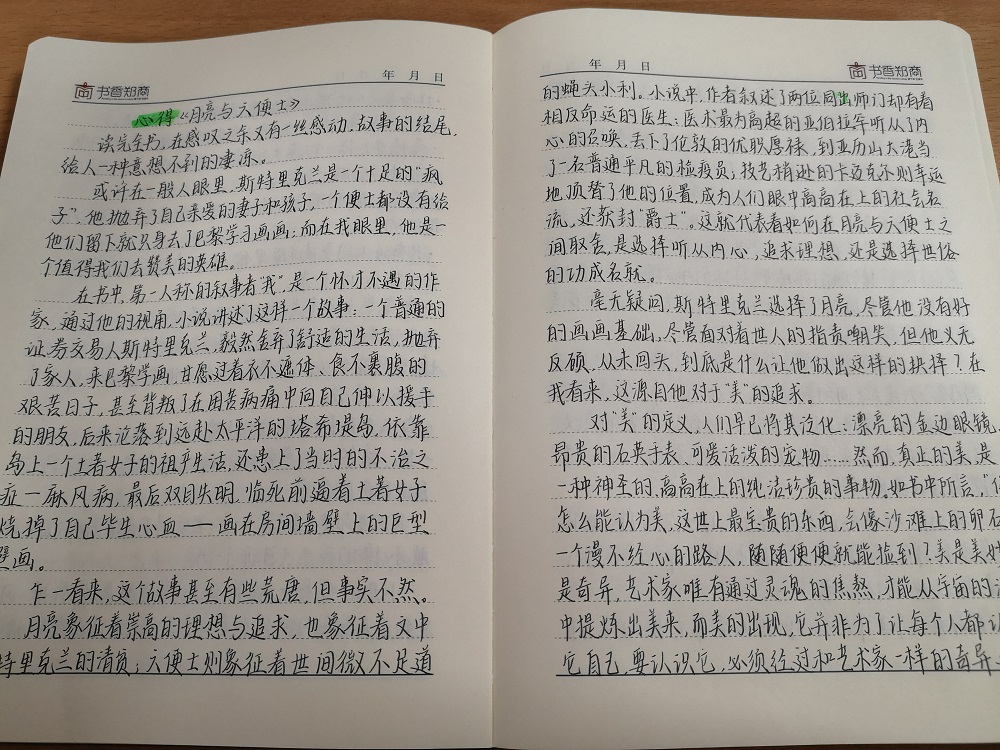 年 月 日
书香郑商
心得《月亮与六便士》
读完全书，在感叹之余又有一丝感动。故事的结尾，
给人一种意想不到的凄凉。
或许在一般人眼里，斯特里克兰是一个十足的“疯
子”。他抛弃了自己亲爱的妻子和孩子，一个便士都没有给
他们留下就只身去了巴黎学习画画；而在我眼里，他是一
个值得我们去赞美的英雄。
在书中，第一人称的叙事者“我”，是一个怀才不遇的作
家，通过他的视角，小说讲述了这样一个故事：一个普通的
证券交易人斯特里克兰，毅然舍弃了舒适的生活，抛弃
了家人，来巴黎学画，甘愿过着衣不遮体、食不裹腹的
艰苦日子，甚至背叛了在困苦病痛中向自己伸以援手
的朋友，后来沦落到远赴太平洋的塔希提岛，依靠
岛上一个土著女子的祖产生活，还患上了当时的不治之
症－麻风病，最后双目失明，临死前逼着土著女子
烧掉了自己毕生心血——画在房间墙壁上的巨型
壁画。
乍一看来，这个故事甚至有些荒唐，但事实不然。
月亮象征着崇高的理想与追求，也象征着文中
特里克兰的清贫；六便士则象征着世间微不足道
年 月 日
书香郑商
的蝇头小利。小说中，作者叙述了两位同出师门却有着
相反命运的医生：医术最为高超的亚伯拉罕听从了内
心的召唤，丢下了伦敦的优职厚禄，到亚历山大港当
了一名普通平凡的检疫员；技艺稍逊的卡迈克尔则幸运
地顶替了他的位置，成为人们眼中高高在上的社会名
流，还获封“爵士”。这就代表着如何在月亮与六便士之
间取舍，是选择听从内心，追求理想，还是选择世俗
的功成名就。
毫无疑问，斯特里克兰选择了月亮，尽管他没有好
的画画基础，尽管面对着世人的指责嘲笑，但他义无
反顾，从未回头，到底是什么让他做出这样的抉择？在
我看来，这源自他对于“美”的追求。
对“美”的定义，人们早已将其泛化：漂亮的金边眼镜、
昂贵的石英手表、可爱活泼的宠物……然而，真正的美，是
一种神圣的、高高在上的纯洁珍贵的事物，如书中所言，“
怎么能认为美，这世上最宝贵的东西，会像沙滩上的卵石
一个漫不经心的路人，随随便便就能捡到？美是美妙
是奇异，艺术家唯有通过灵魂的焦熬，才能从宇宙的
中提炼出美来，而美的出现，它并非为了让每个人都认
它自己，要认识它，必须经过和艺术家一样的奇异